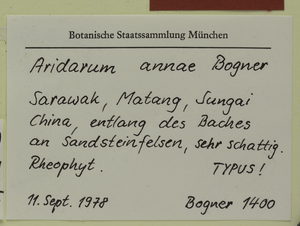 Botanische Staatssammlung München
Aridarum annae Bogner
Sarawak, Matang, Sungai
China, entlang des Baches
an Sandsteinfelsen, sehr schattig.
Rheophyt. TYPUS!
11. Sept. 1978 Bogner 1400